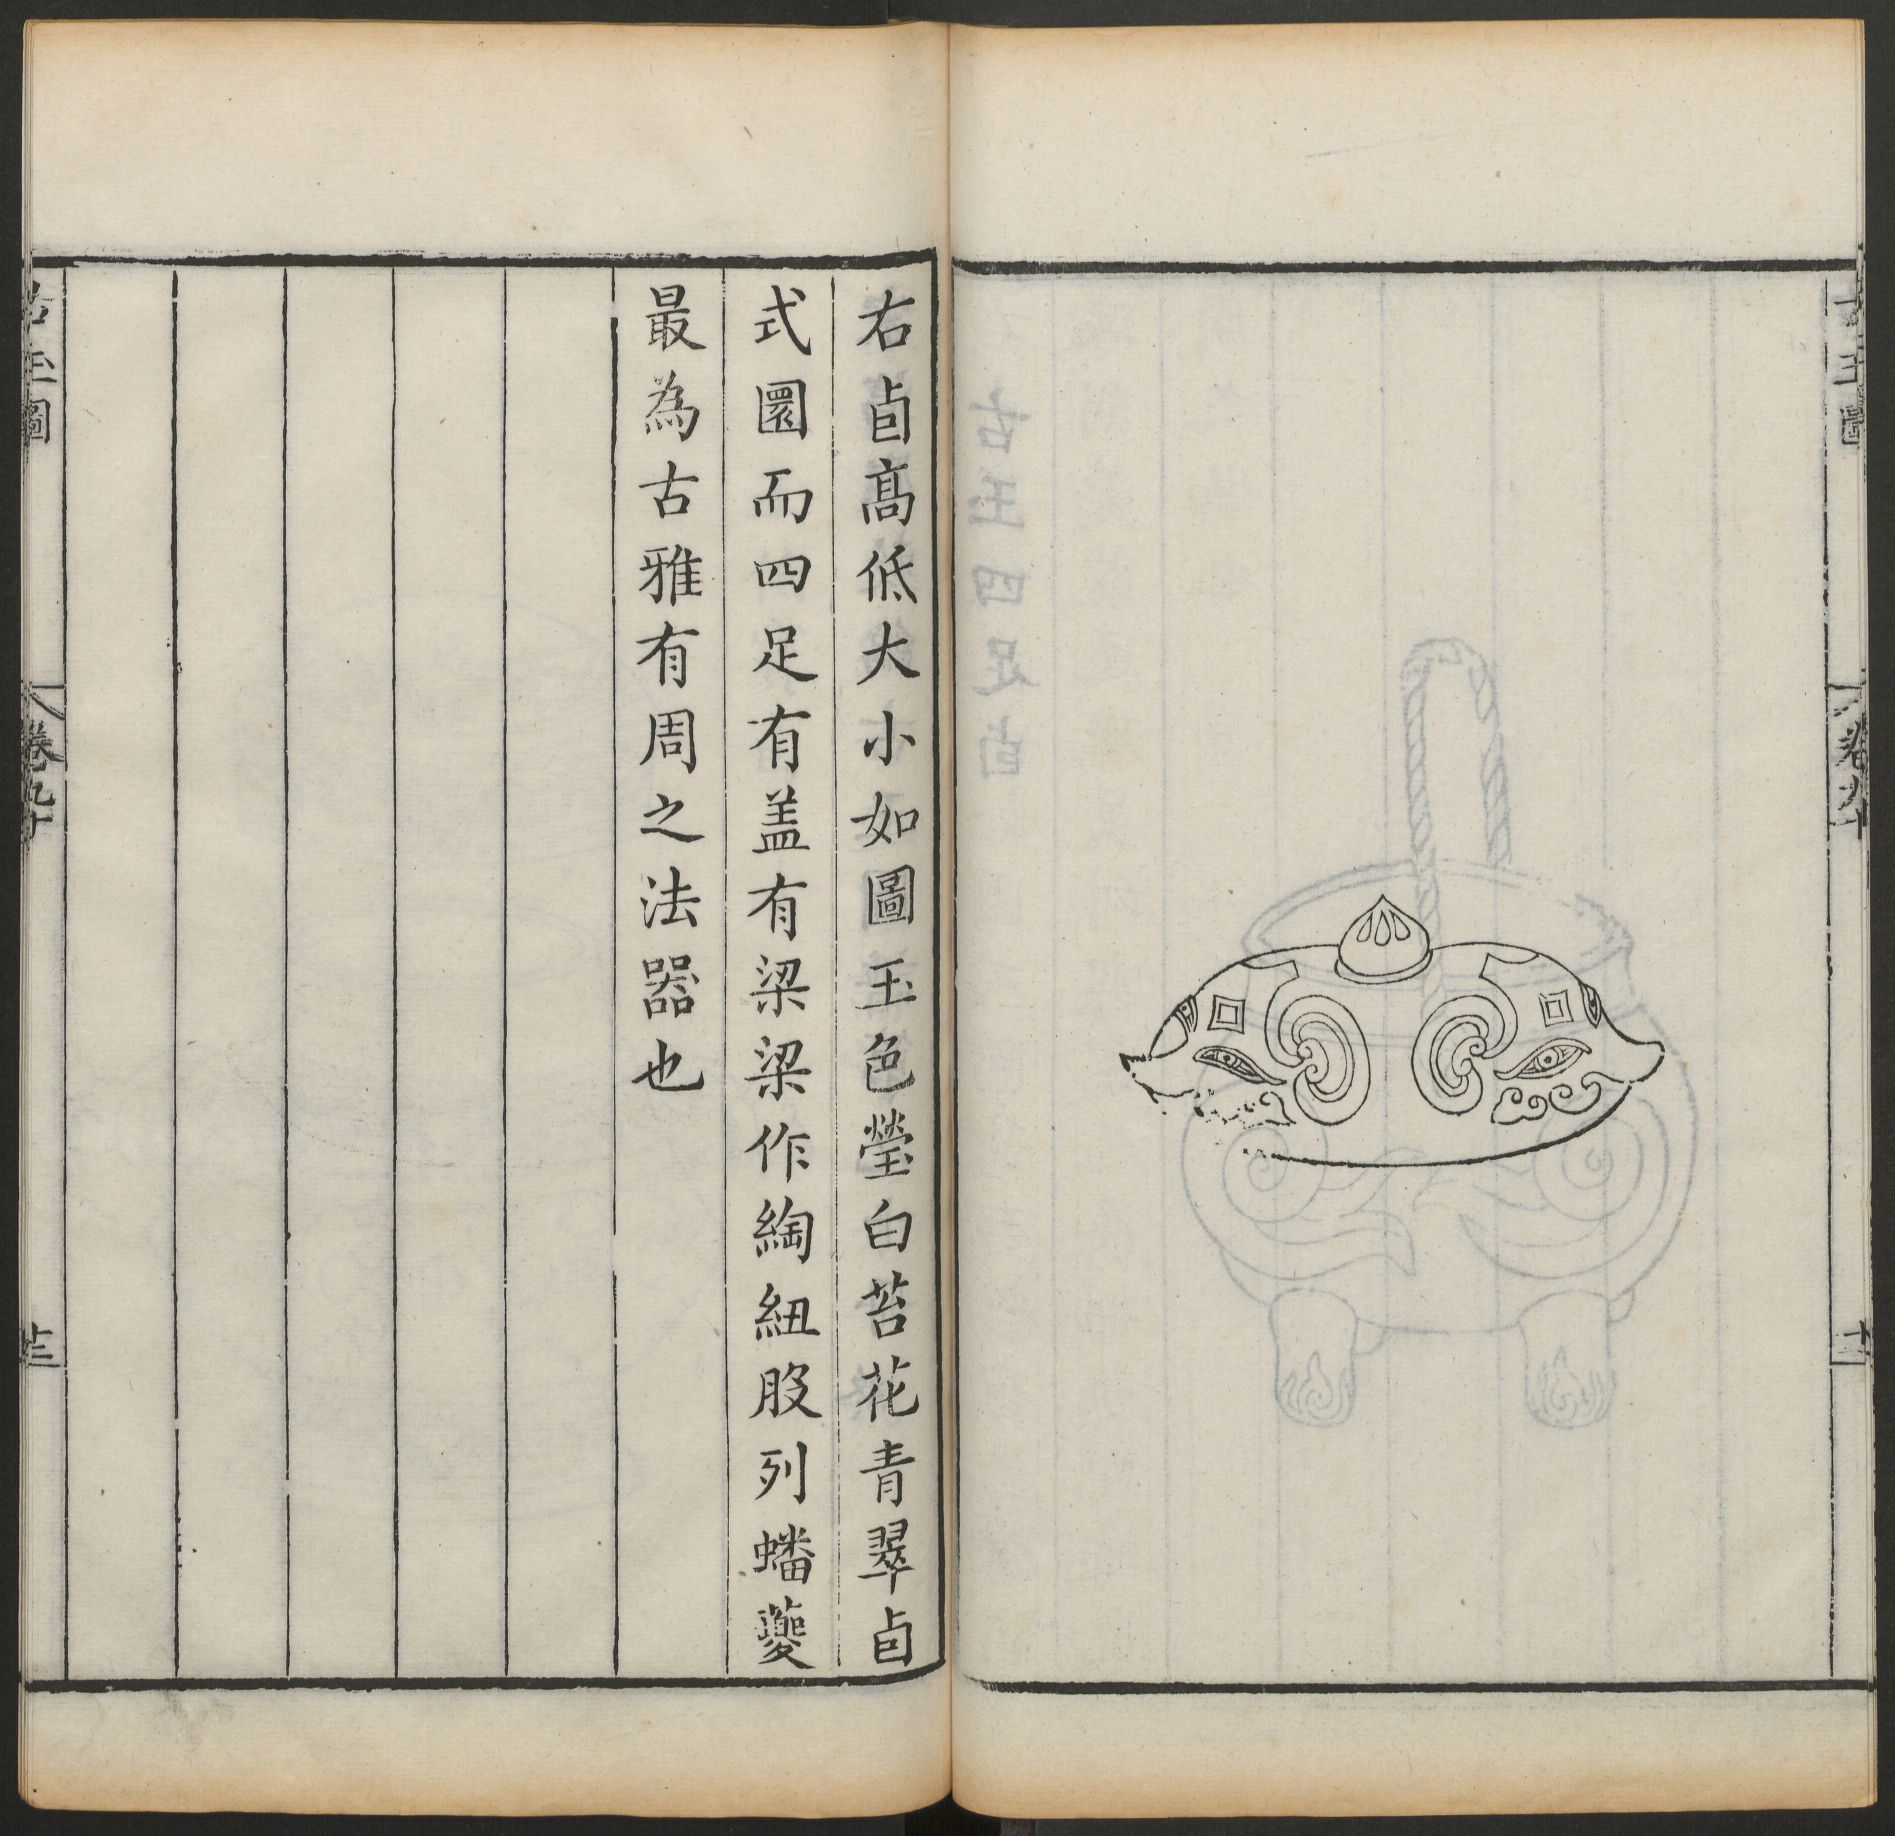 右卣高低大小如圖玉色瑩白苔花青翠卣
式圜而四足有盖有梁梁作綯紐股列蟠夔
最為古雅有周之法器也
古玉圖
卷九十